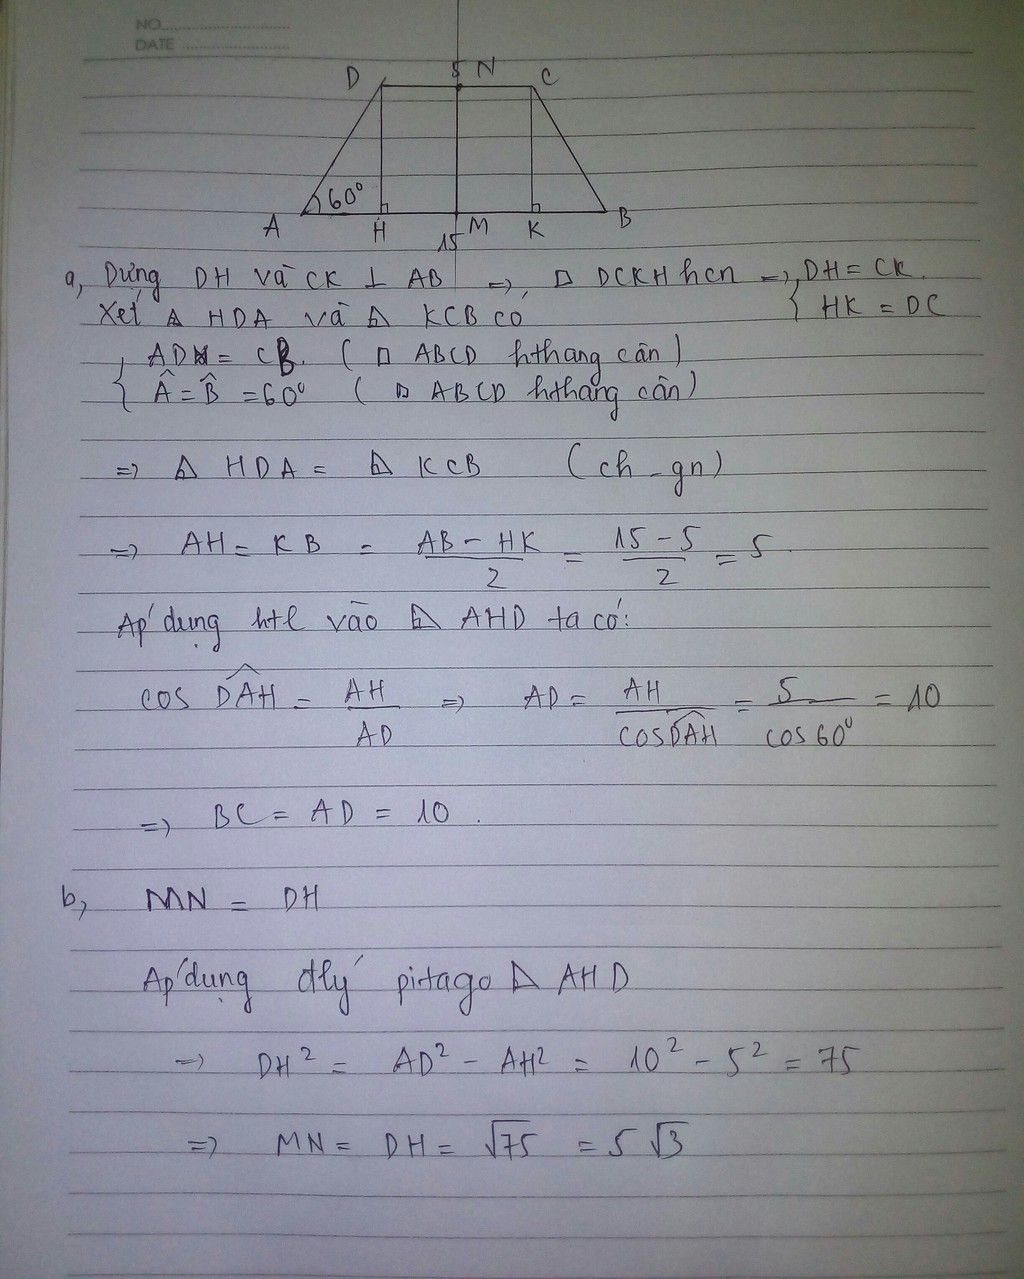 NO
DATE
D 5 N C
60°
A H 15 M K B
a, Dựng DH và CK ⊥ AB => □ DCKH hcn => { DH = CK
HK = DC
Xét △ HDA và △ KCB có
{ AD = CB. (□ ABCD hthang cân)
Â = B̂ = 60° (□ ABCD hthang cân)
=> △ HDA = △ KCB (ch - gn)
=> AH = KB = (AB - HK)/2 = (15 - 5)/2 = 5.
Áp dụng htl vào △ AHD ta có:
cos DÂH = AH/AD => AD = AH/cos DÂH = 5/cos 60° = 10
=> BC = AD = 10.
b, MN = DH
Áp dụng đlý pitago △ AHD
=> DH² = AD² - AH² = 10² - 5² = 75
=> MN = DH = √75 = 5√3